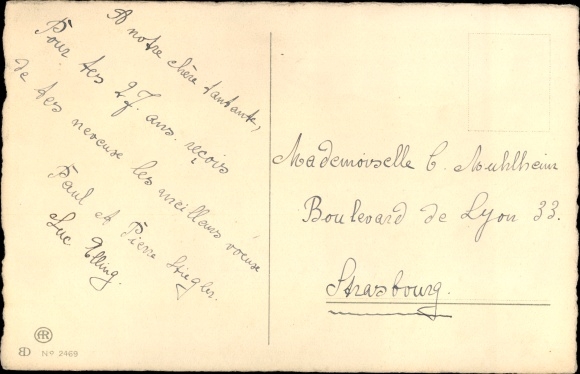 A notre chère tantante,
Pour tes 27. ans. reçois
de tes neveuse les meilleurs voeuse
Paul et Pierre Stiegler.
Luc Elling.
Mademoiselle C. Muhlheim
Boulevard de Lyon 33.
Strasbourg.
AR
BD No 2469